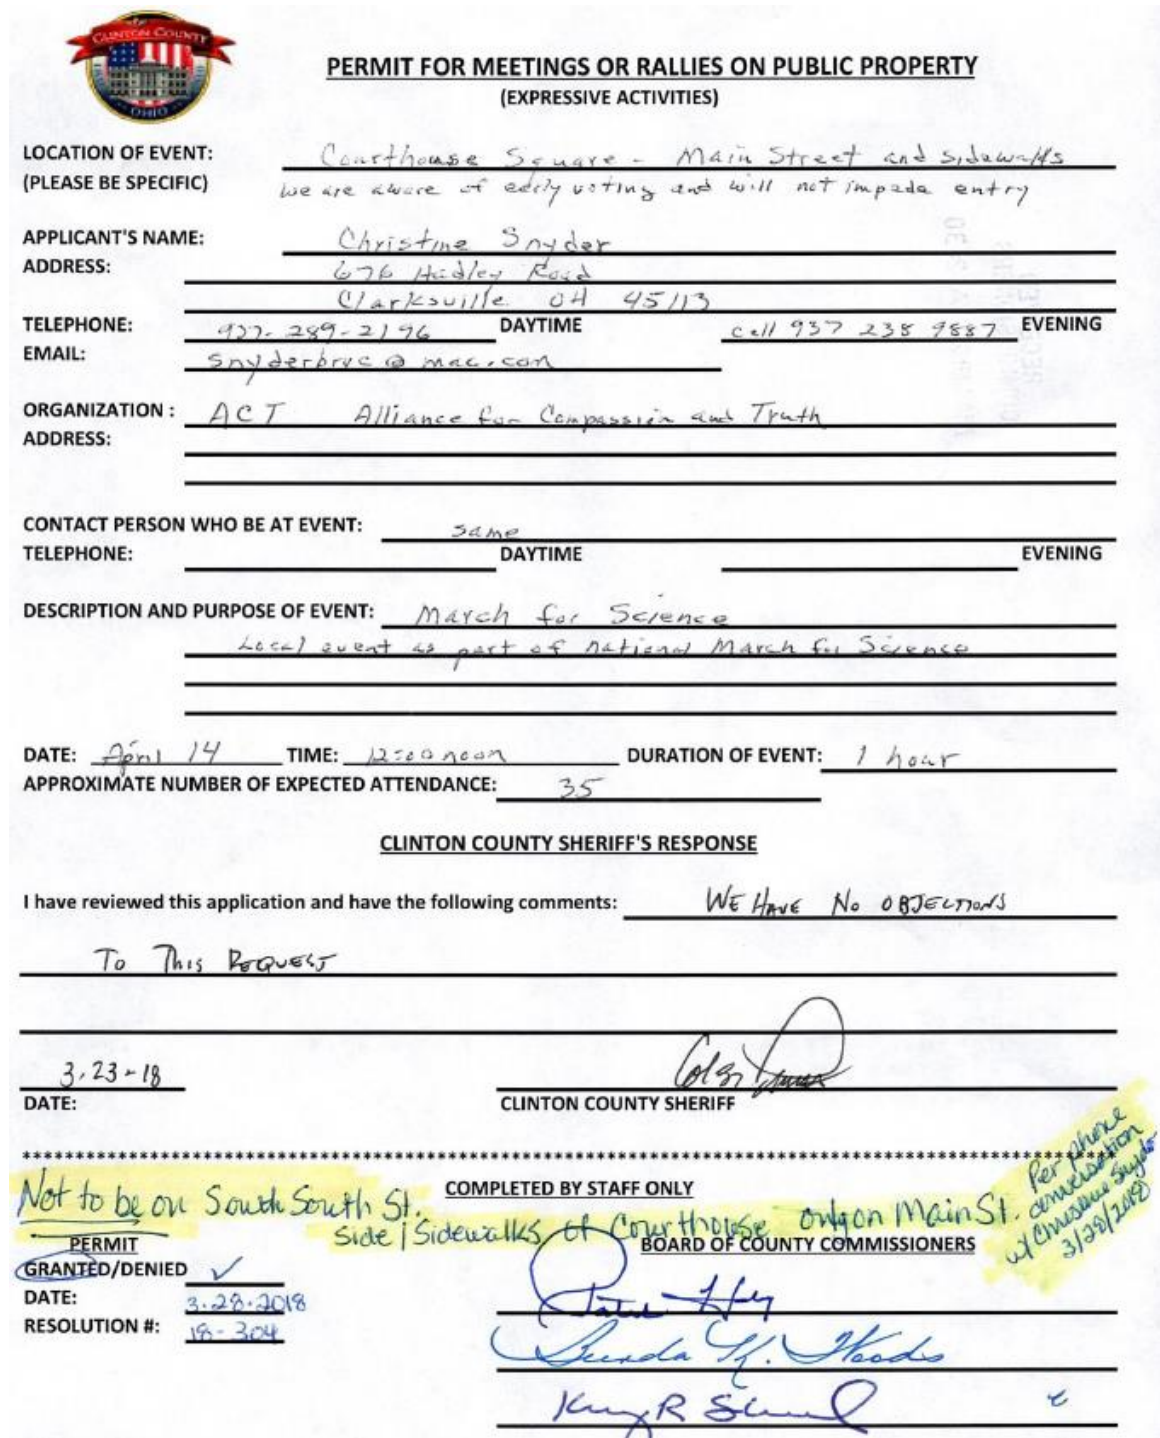 CLINTON COUNTY
OHIO
PERMIT FOR MEETINGS OR RALLIES ON PUBLIC PROPERTY
(EXPRESSIVE ACTIVITIES)
LOCATION OF EVENT: Courthouse Square - Main Street and sidewalks
(PLEASE BE SPECIFIC) we are aware of early voting and will not impede entry
APPLICANT'S NAME: Christine Snyder
ADDRESS: 676 Hadley Road
Clarksville OH 45113
TELEPHONE: 937-289-2196 DAYTIME cell 937 238 9887 EVENING
EMAIL: snyderbryc@mac.com
ORGANIZATION : ACT Alliance for Compassion and Truth
ADDRESS:
CONTACT PERSON WHO BE AT EVENT: same
TELEPHONE: DAYTIME EVENING
DESCRIPTION AND PURPOSE OF EVENT: March for Science
Local event as part of national March for Science
DATE: April 14 TIME: 12:00 noon DURATION OF EVENT: 1 hour
APPROXIMATE NUMBER OF EXPECTED ATTENDANCE: 35
CLINTON COUNTY SHERIFF'S RESPONSE
I have reviewed this application and have the following comments: WE HAVE No OBJECTIONS
To This REQUEST
3.23-18
DATE: CLINTON COUNTY SHERIFF
COMPLETED BY STAFF ONLY
Not to be on South South St.
Side/Sidewalks of Courthouse only on Main St.
Per phone conversation w/ Christine Snyder 3/28/2018
PERMIT BOARD OF COUNTY COMMISSIONERS
GRANTED/DENIED ✓
DATE: 3.28.2018
RESOLUTION #: 18-304
Brenda K. Woods